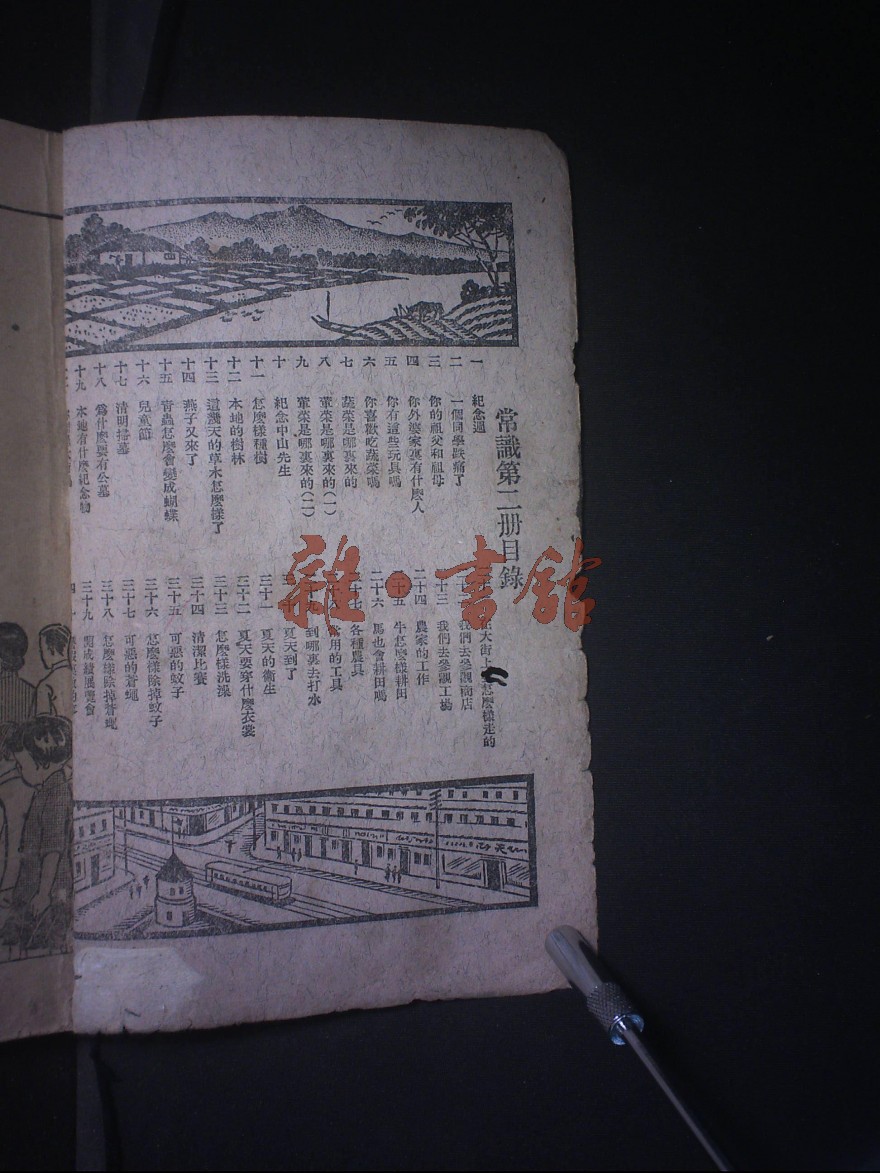 常識第二册目錄
一 紀念週
二 一個同學跌痛了
三 你的祖父和祖母
四 你外婆家裏有什麼人
五 你有這些玩具嗎
六 你喜歡吃蔬菜嗎
七 蔬菜是哪裏來的
八 葷菜是哪裏來的(一)
九 葷菜是哪裏來的(二)
十 紀念中山先生
十一 怎麼樣種樹
十二 本地的樹林
十三 這幾天的草木怎麼樣了
十四 燕子又來了
十五 青蟲怎麼會變成蝴蝶
十六 兒童節
十七 清明掃墓
十八 爲什麼要有公墓
十九 本地有什麼紀念物
在大街上怎麼樣走的
我們去參觀商店
十三 我們去參觀工場
二十四 農家的工作
二十五 牛怎麼樣耕田
二十六 馬也會耕田嗎
二十七 各種農具
常用的工具
到哪裏去打水
夏天到了
三十一 夏天的衞生
三十二 夏天要穿什麼衣裳
三十三 怎麼樣洗澡
三十四 清潔比賽
三十五 可惡的蚊子
三十六 怎麼樣除掉蚊子
三十七 可惡的蒼蠅
三十八 怎麼樣除掉蒼蠅
三十九 開成績展覽會
雜·書館